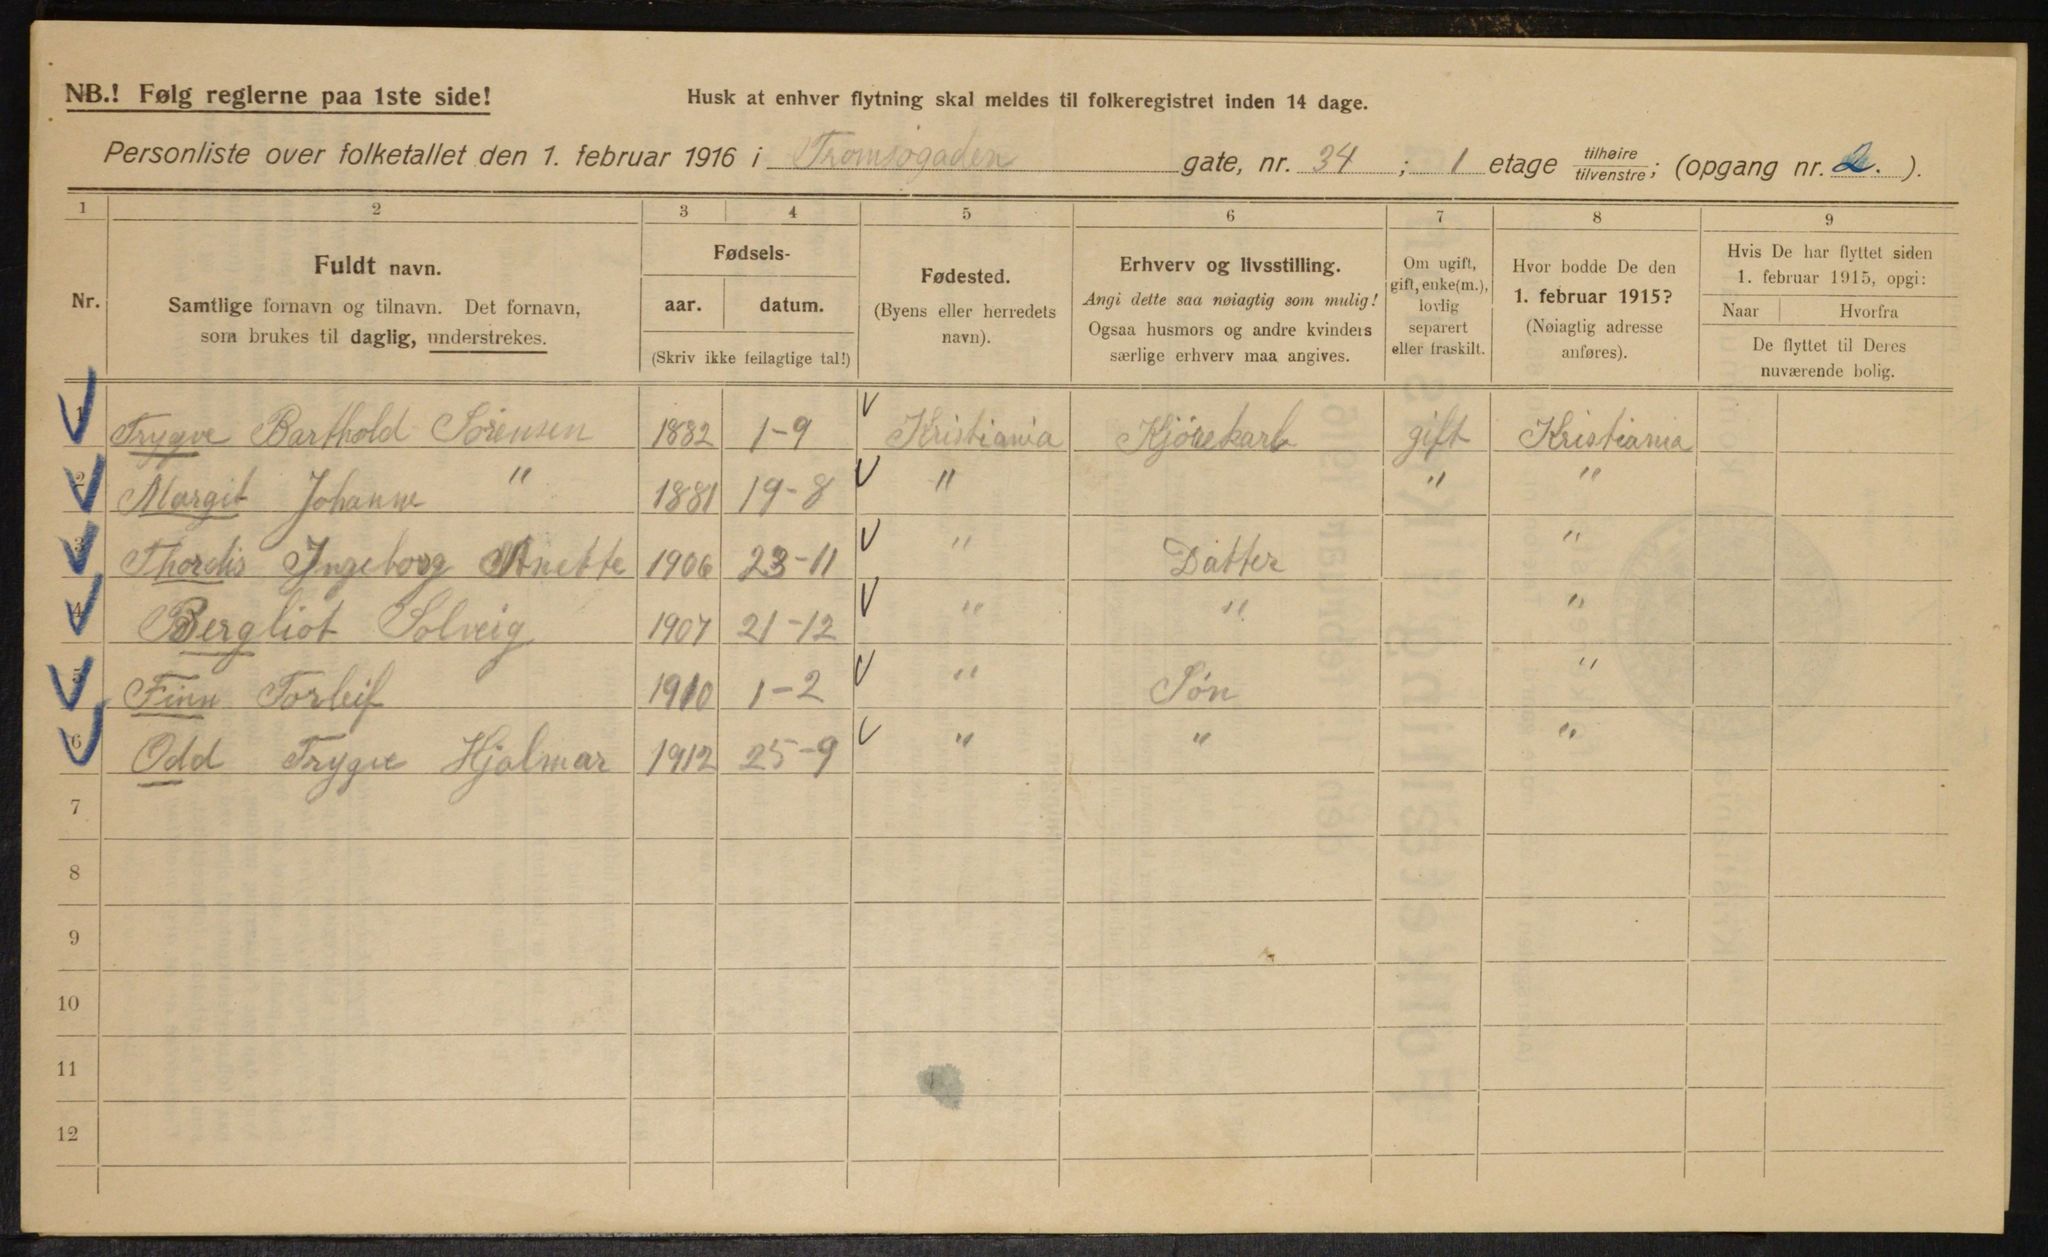 NB.! Følg reglerne paa 1ste side!
Husk at enhver flytning skal meldes til folkeregistret inden 14 dage.
Personliste over folketallet den 1. februar 1916 i Tromsøgaden gate, nr. 34 ; 1 etage tilhøire/tilvenstre; (opgang nr. 2. ).
1 2 3 4 5 6 7 8 9
Nr.
Fuldt navn.
Samtlige fornavn og tilnavn. Det fornavn,
som brukes til daglig, understrekes.
Fødsels-
aar. datum.
(Skriv ikke feilagtige tal!)
Fødested.
(Byens eller herredets
navn).
Erhverv og livsstilling.
Angi dette saa nøiagtig som mulig!
Ogsaa husmors og andre kvinders
særlige erhverv maa angives.
Om ugift,
gift, enke(m.),
lovlig
separert
eller fraskilt.
Hvor bodde De den
1. februar 1915?
(Nøiagtig adresse
anføres).
Hvis De har flyttet siden
1. februar 1915, opgi:
Naar Hvorfra
De flyttet til Deres
nuværende bolig.
1 Trygve Barthold Sørensen 1882 1-9 Kristiania Kjørekarl gift Kristiania
2 Margit Johanne " 1881 19-8 " " "
3 Thordis Ingeborg Anette 1906 23-11 " Datter "
4 Bergliot Solveig 1907 21-12 " " "
5 Finn Torleif 1910 1-2 " Søn "
6 Odd Trygve Hjalmar 1912 25-9 " " "
7
8
9
10
11
12